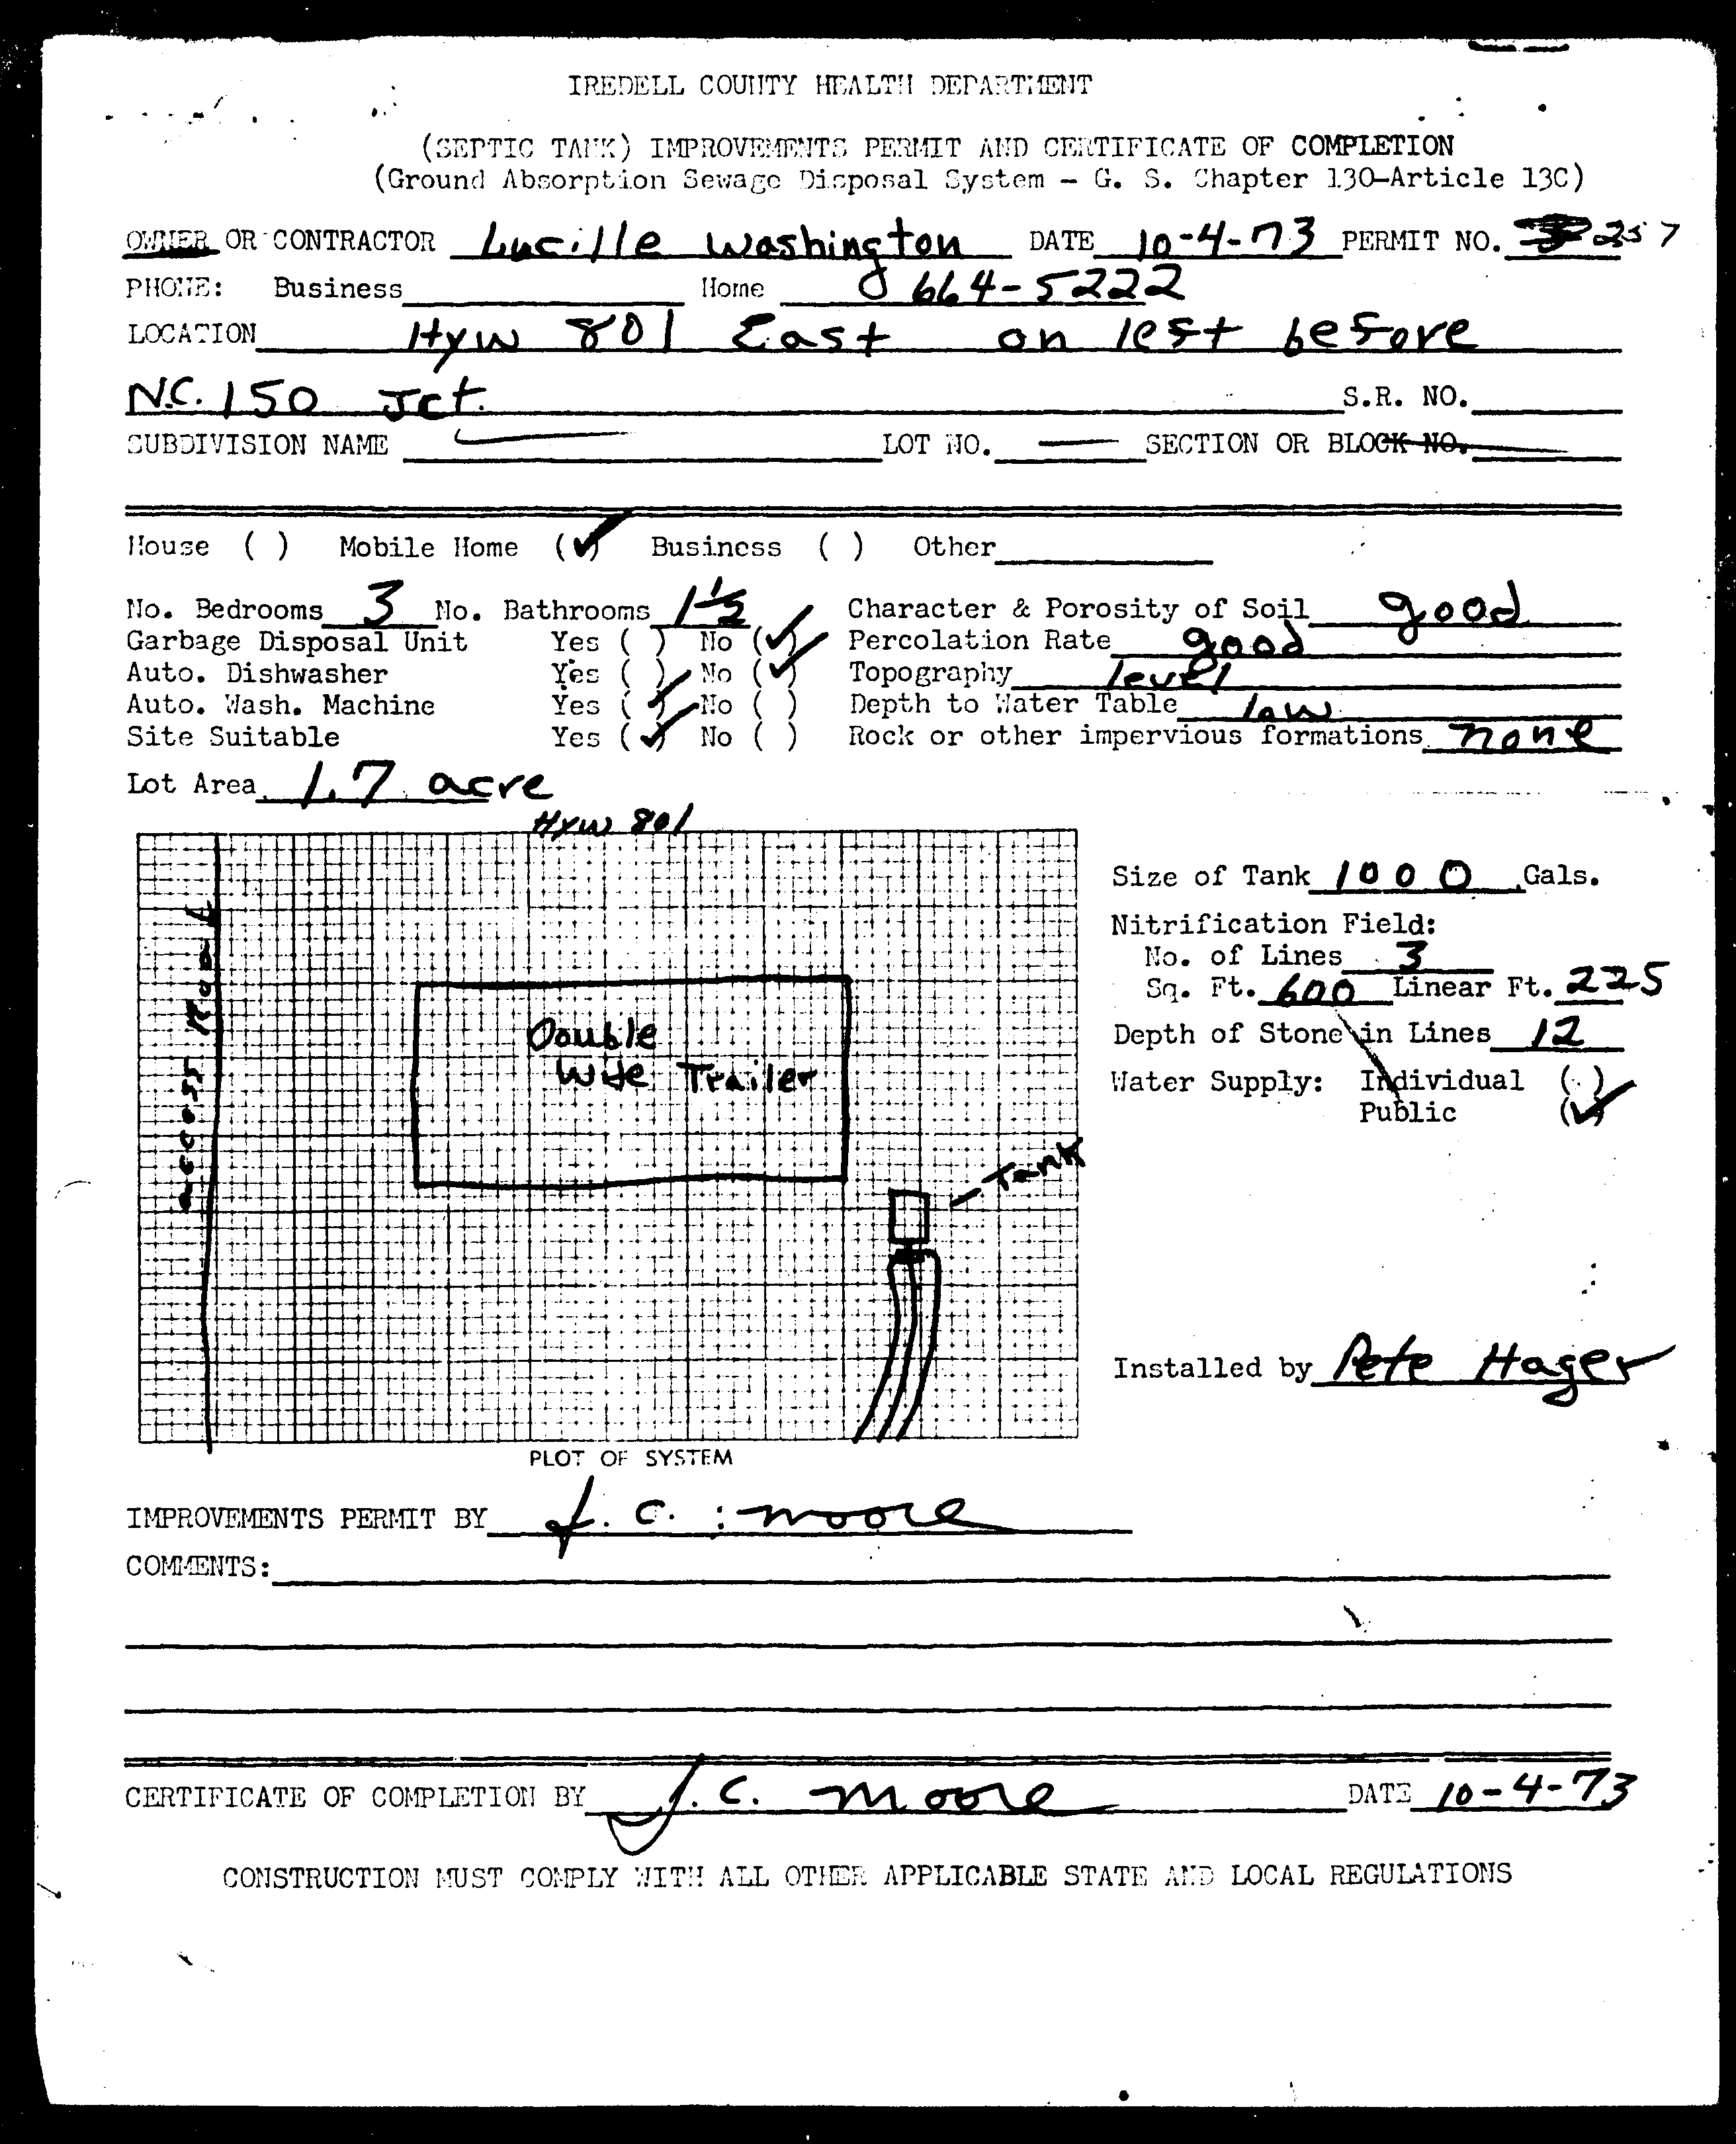 IREDELL COUNTY HEALTH DEPARTMENT
(SEPTIC TANK) IMPROVEMENTS PERMIT AND CERTIFICATE OF COMPLETION
(Ground Absorption Sewage Disposal System - G. S. Chapter 130-Article 13C)
OWNER OR CONTRACTOR Lucille Washington DATE 10-4-73 PERMIT NO. 257
PHONE: Business Home 664-5222
LOCATION Hyw 801 East on left before
N.C. 150 Jct. S.R. NO.
SUBDIVISION NAME LOT NO. — SECTION OR BLOCK NO.
House ( ) Mobile Home (✓) Business ( ) Other
No. Bedrooms 3 No. Bathrooms 1 1/2 Character & Porosity of Soil good
Garbage Disposal Unit Yes ( ) No (✓) Percolation Rate good
Auto. Dishwasher Yes ( ) No (✓) Topography level
Auto. Wash. Machine Yes (✓) No ( ) Depth to Water Table low
Site Suitable Yes (✓) No ( ) Rock or other impervious formations none
Lot Area 1.7 acre
Hyw 801
access Road
Double
Wide Trailer
Tank
PLOT OF SYSTEM
Size of Tank 1000 Gals.
Nitrification Field:
No. of Lines 3
Sq. Ft. 600 Linear Ft. 225
Depth of Stone in Lines 12
Water Supply: Individual ( )
Public (✓)
Installed by Pete Hager
IMPROVEMENTS PERMIT BY J. C. Moore
COMMENTS:
CERTIFICATE OF COMPLETION BY J. C. Moore DATE 10-4-73
CONSTRUCTION MUST COMPLY WITH ALL OTHER APPLICABLE STATE AND LOCAL REGULATIONS